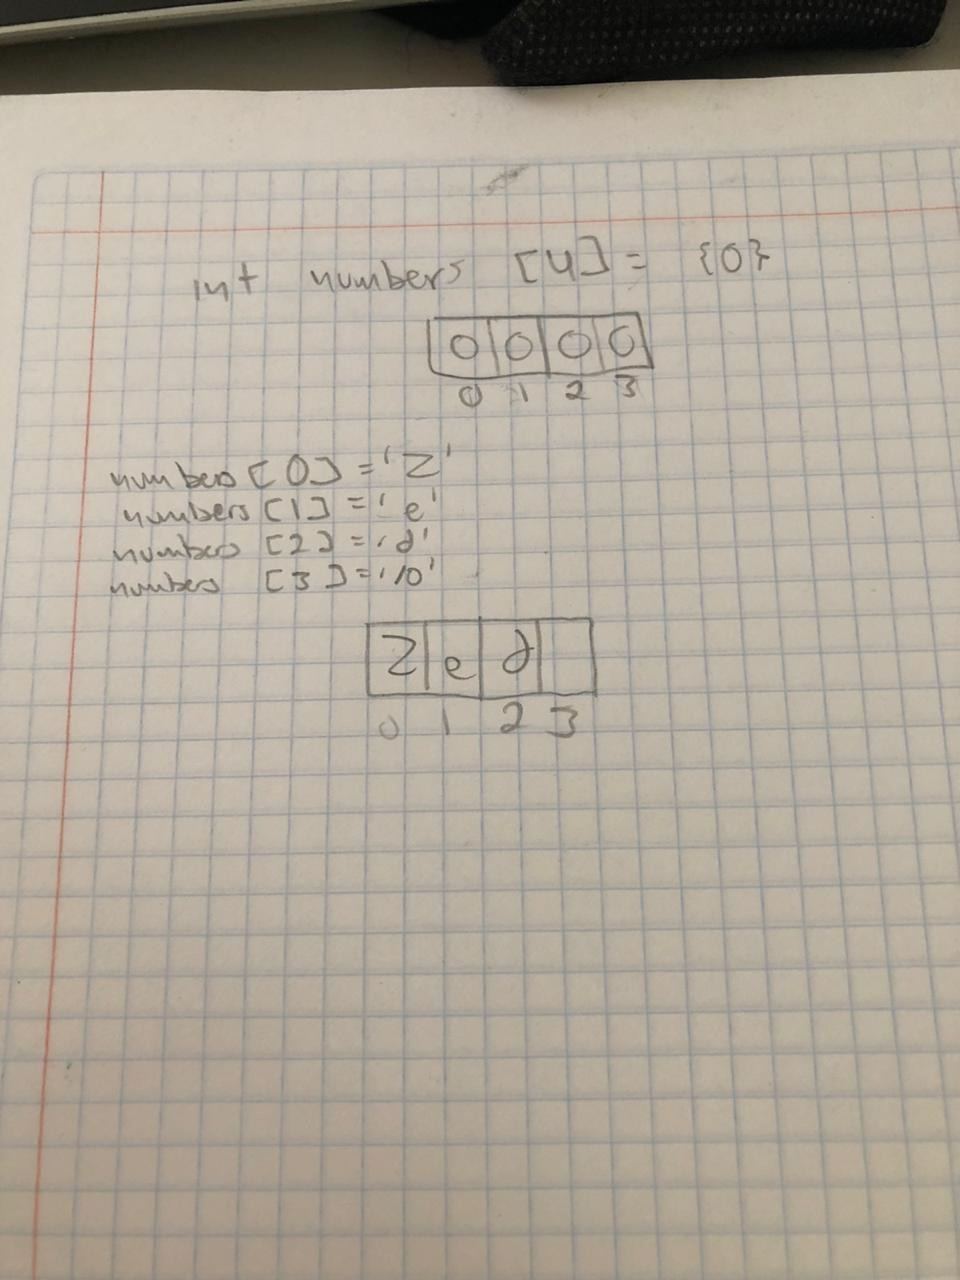 int numbers [4] = {0}
0 0 0 0
0 1 2 3
numbers [0] = 'Z'
numbers [1] = 'e'
numbers [2] = 'd'
numbers [3] = '\0'
Z e d
0 1 2 3